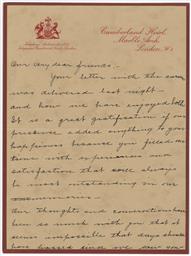 Cumberland Hotel,
Marble Arch,
London, W.1.
Our very dear friends -
Your letter with the
was delivered last night -
and how we have enjoyed both.
It is a great gratification if our
presence added anything to your
happiness because you filled our
time with supersonic
satisfaction that will always
be most outstanding in our
memories -
Our thoughts and conversation have
been so much with you that it
seems impossible that days should
have passed since we saw you